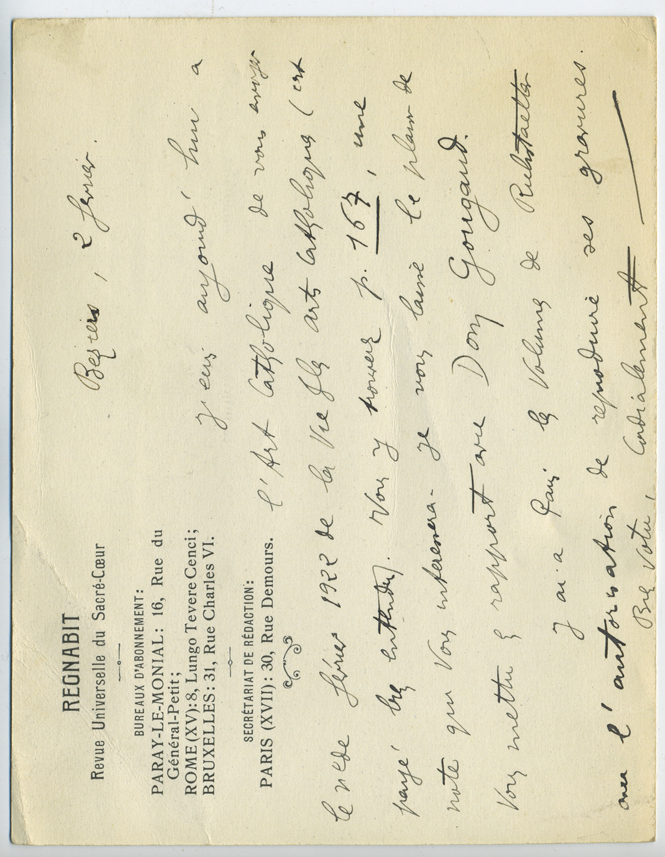 REGNABIT
Revue Universelle du Sacré-Cœur
BUREAUX D'ABONNEMENT:
PARAY-LE-MONIAL: 16, Rue du
Général-Petit;
ROME (XV): 8, Lungo Tevere Cenci;
BRUXELLES: 31, Rue Charles VI.
SECRÉTARIAT DE RÉDACTION:
PARIS (XVII): 30, Rue Demours.
Beziers, 2 février.
J'ecris aujourd'hui a
l'Art Catholique de vous envoyer
le n° de février 1922 de la Vie & les arts Catholiques (est
payé bien entendu). Vous y trouverez p. 167, une
note qui vous interessera - je vous laisse le plaisir de
vous mettre en rapport avec Dom Gougaud.
J'ai a Paris le volume de
avec l'autorisation de reproduire ses gravures.
Bien votre, Cordialement